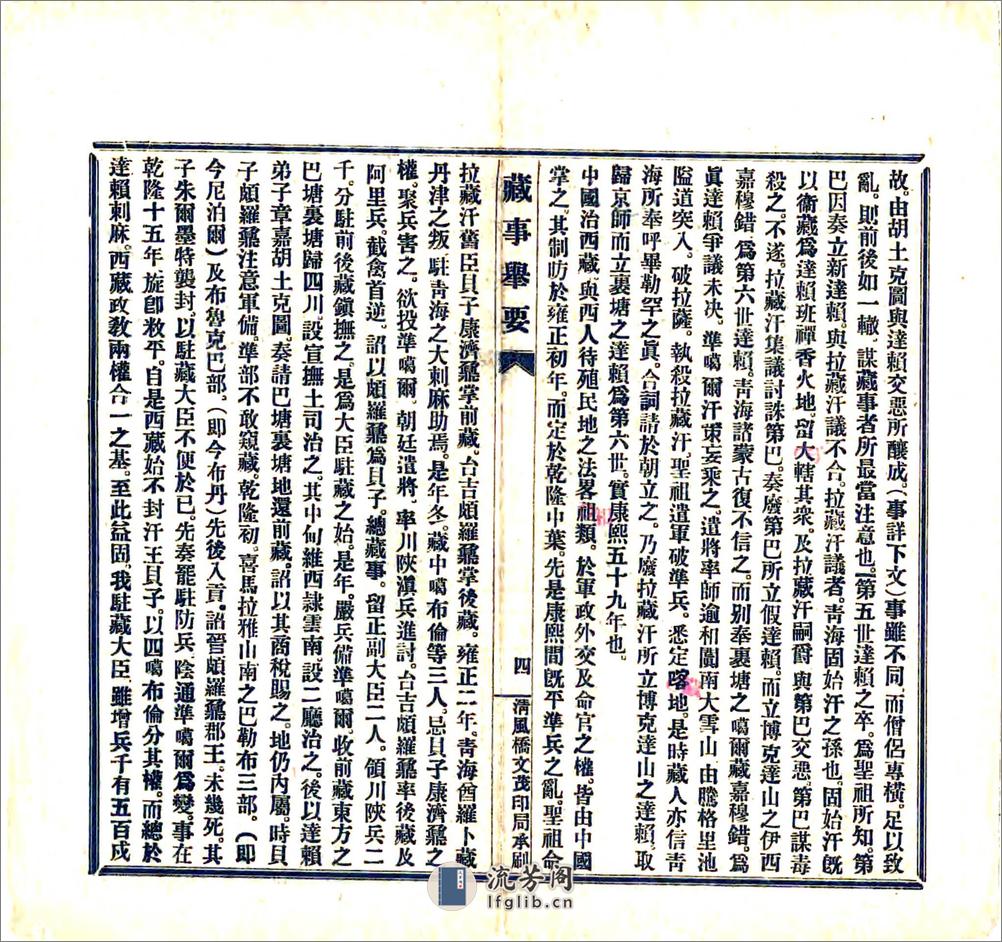 故。由胡土克圖與達賴交惡所釀成。（事詳下文）事雖不同。而僧侶專橫。足以致
亂。則前後如一轍。謀藏事者所最當注意也。第五世達賴之卒。爲聖祖所知。第
巴因奏立新達賴。與拉藏汗議不合。拉藏汗議者。青海固始汗之孫也。固始汗旣
以衞藏爲達賴班禪香火地。留大轄其衆。及拉藏汗嗣爵與第巴交惡。第巴謀毒
殺之。不遂。拉藏汗集議討誅第巴。奏廢第巴所立假達賴。而立博克達山之伊西
嘉穆錯。爲第六世達賴。青海諸蒙古復不信之。而别奉裏塘之噶爾藏嘉穆錯。爲
眞達賴爭議未决。準噶爾汗東妄乘之。遣將率師逾和闐南大雪山由騰格里池
隘道突入。破拉薩。執殺拉藏汗。聖祖遣軍破準兵。悉定喀地。是時藏人亦信青
海所奉呼畢勒罕之眞。合詞請於朝立之。乃廢拉藏汗所立博克達山之達賴。取
歸京師而立裏塘之達賴爲第六世。實康熙五十九年也。
中國治西藏。與西人待殖民地之法畧相類。於軍政外交及命官之權。皆由中國
掌之。其制昉於雍正初年。而定於乾隆中葉。先是康熙間旣平準兵之亂。聖祖命
藏事舉要
四
清風橋文茂印局承刷
拉藏汗舊臣貝子康濟鼐掌前藏。台吉頗羅鼐掌後藏。雍正二年。青海酋羅卜藏
丹津之叛。駐青海之大刺麻助焉。是年冬。藏中噶布倫等三人。忌貝子康濟鼐之
權。聚兵害之。欲投準噶爾。朝廷遣將。率川陝滇兵進討。台吉頗羅鼐率後藏及
阿里兵。截禽首逆。詔以頗羅鼐爲貝子。總藏事。留正副大臣二人。領川陝兵二
千。分駐前後藏鎮撫之。是爲大臣駐藏之始。是年。嚴兵備準噶爾。收前藏東方之
巴塘裏塘歸四川。設宣撫土司治之。其中甸維西隸雲南。設二廳治之。後以達賴
弟子章嘉胡土克圖。奏請巴塘裏塘地還前藏。詔以其商稅賜之。地仍內屬。時貝
子頗羅鼐注意軍備。準部不敢窺藏。乾隆初。喜馬拉雅山南之巴勒布三部。（即
今尼泊爾）及布魯克巴部。（即今布丹）先後入貢。詔晉頗羅鼐郡王。未幾死。其
子朱爾墨特襲封。以駐藏大臣不便於己。先奏罷駐防兵。陰通準噶爾爲變。事在
乾隆十五年。旋卽敉平。自是西藏始不封汗王貝子。以四噶布倫分其權。而總於
達賴刺麻。西藏政敎兩權合一之基。至此益固。我駐藏大臣。雖增兵千有五百戍
流芳阁
lfglib.cn